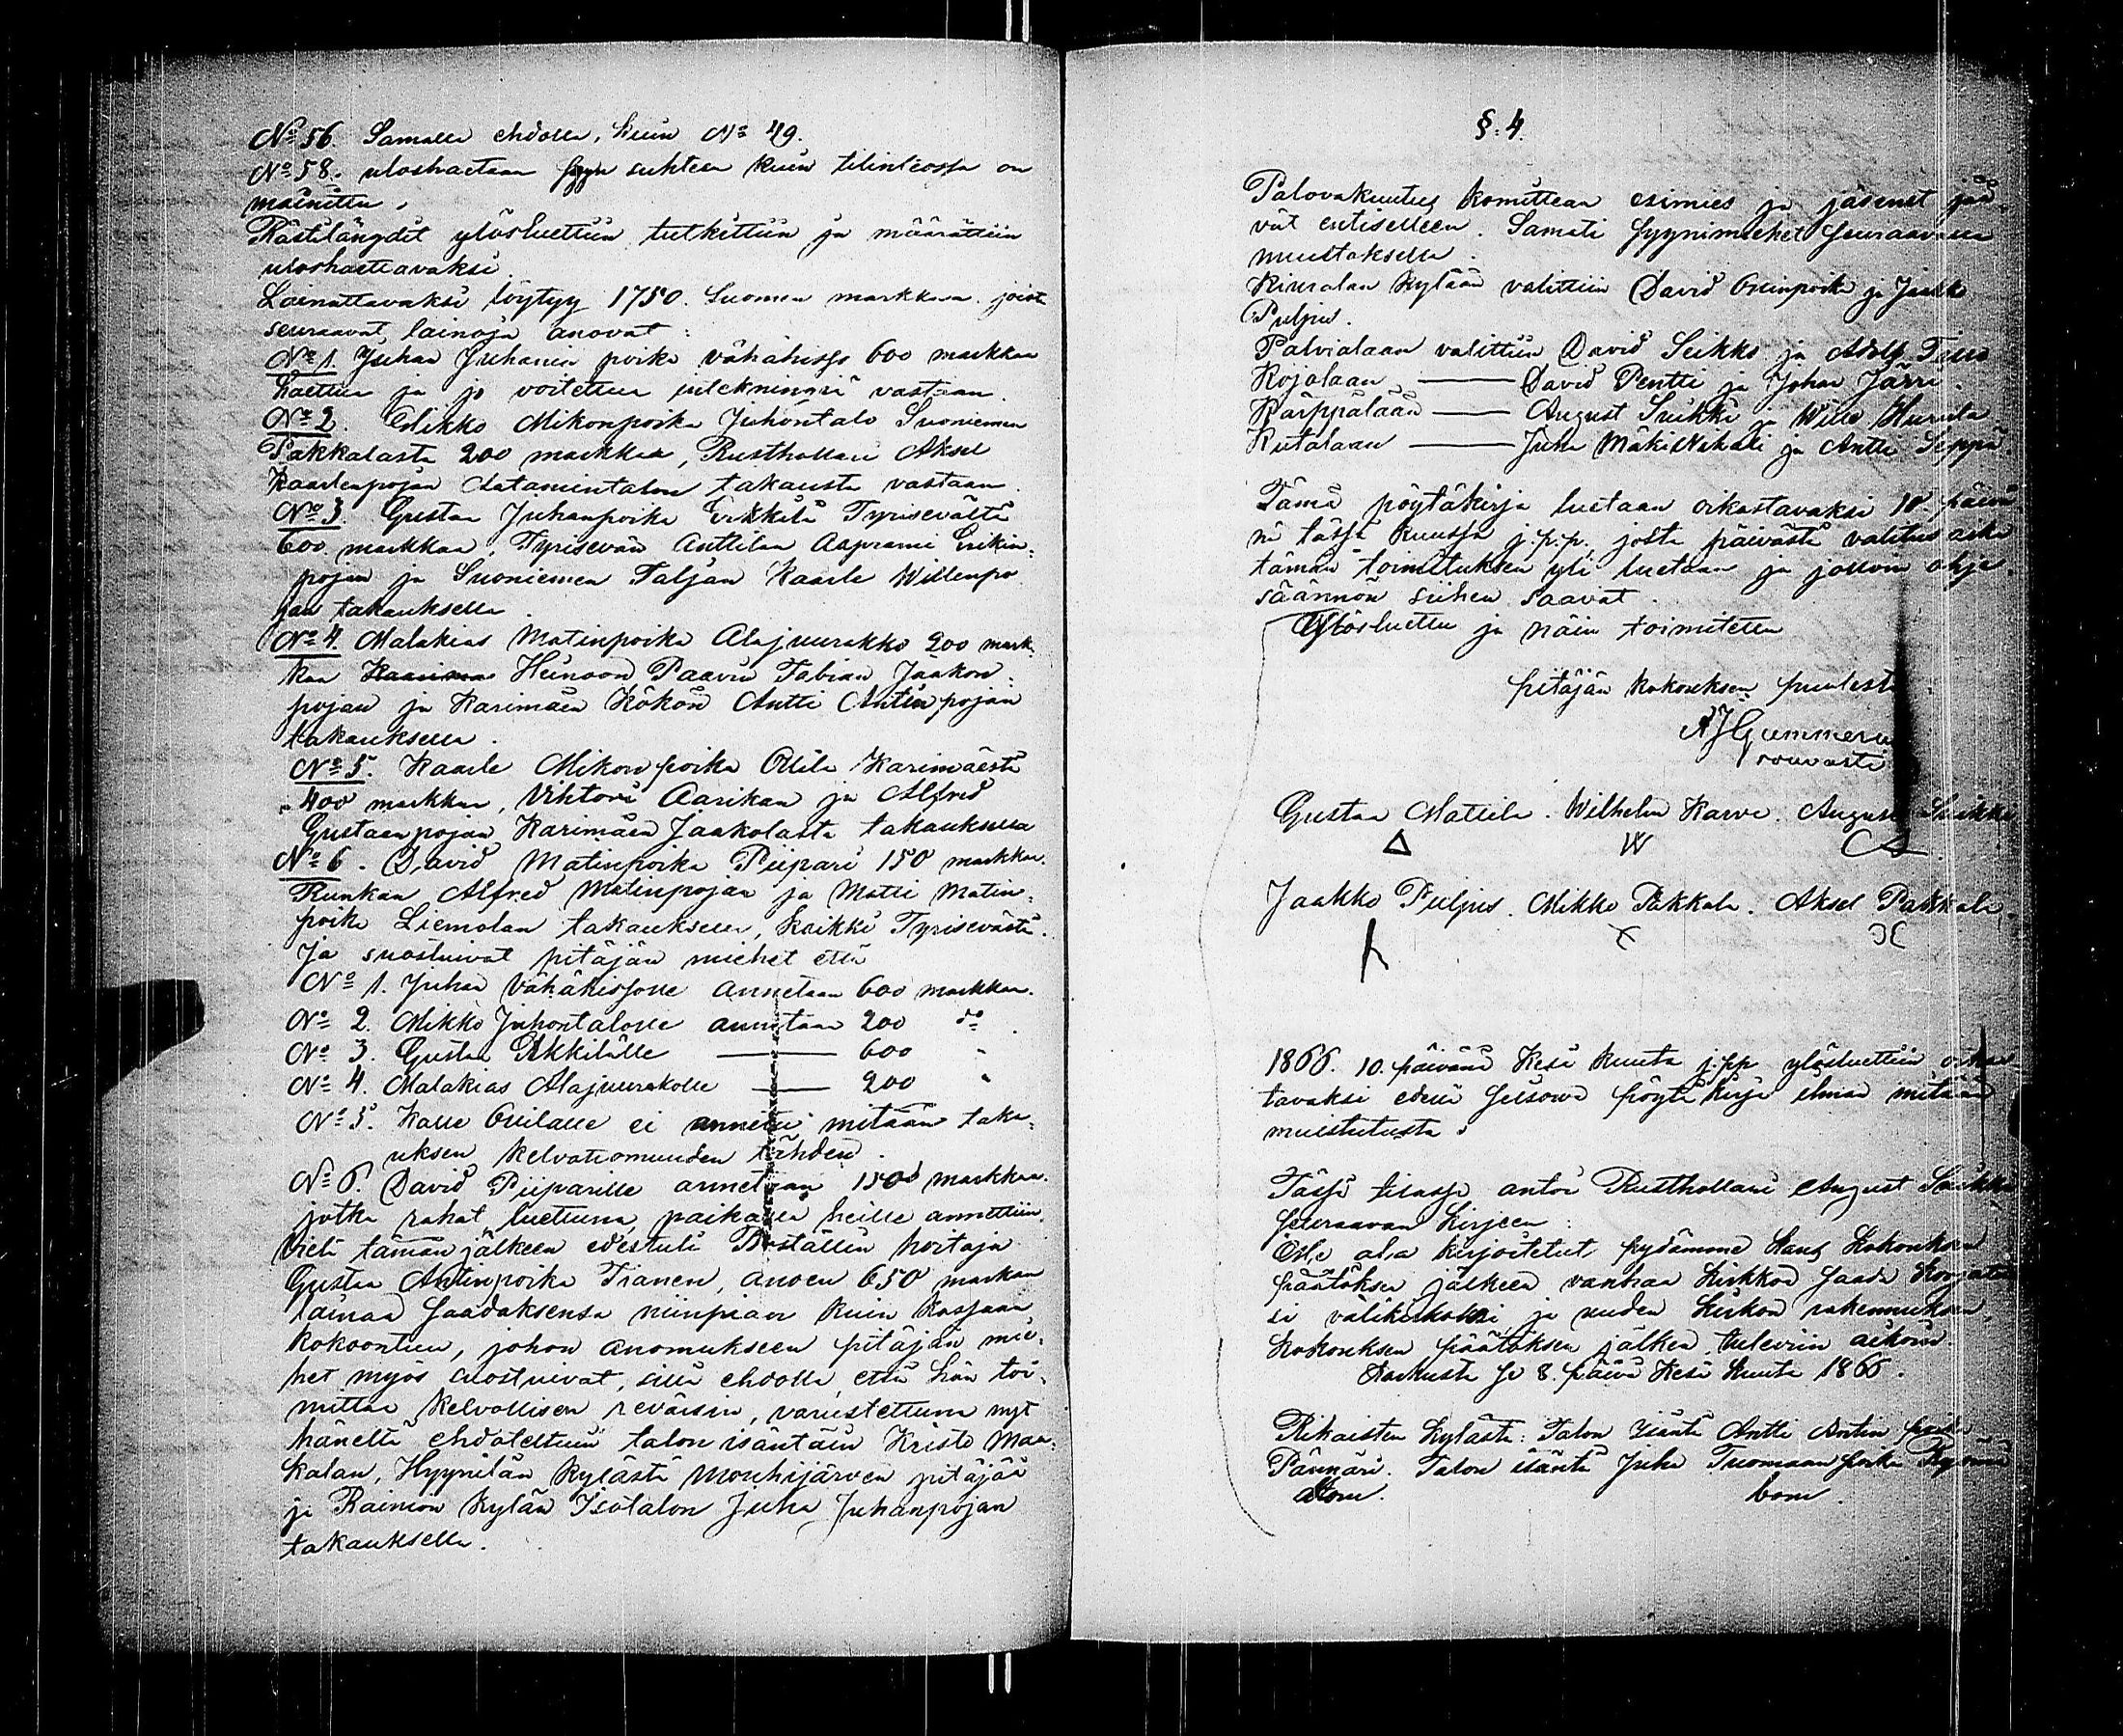 No 56. Samalla ehdolla, kuin No 49.
No 58. uloshaetaan syyn suhteen kuin tilinteossa on
mainittu.
Rästilängdit ylösluettiin tutkittiin ja määrättiin
uloshaettavaksi.
Lainattavaksi löytyy 1750. Suomen markkaa. joista
seuraavat lainoja anovat:
No 1. Juhan Juhanen poika Vähähissa 600 markkaa
haettua ja jo voitettua inteckningiä vastaan.
No 2. Mikko Mikonpoika Juhontalo Suoniemen
Pakkalasta 200 markkaa, Rusthollari Aksel
Kaarlenpojan takausta vastaan.
No 3. Gustaa Juhanpoika Erkkilä Tyrisevältä
600. markkaa, Tyrisevän Anttilan Aaprami Erikin-
pojan ja Suoniemen Taljan Kaarle Willenpo
jan takauksella.
No 4. Malakias Matinpoika Alajuurakko 200 mark-
kaa Heinoon Paavin Fabian Jaakon-
pojan ja Karimäen Kökön Antti Antinpojan
takauksella.
No 5. Kaarle Mikonpoika Ollila Karimäestä
400 markkaa, Viktori Aarikan ja Alfred
Gustaanpojan Karimäen Jaakolasta takauksella
No 6. David Matinpoika Piipari 150 markkaa.
Runkan Alfred Matinpojan ja Matti Matin-
poika Liemolan takauksella, kaikki Tyrisevästä.
Ja suostuivat pitäjän miehet että
No 1. Juhan Vähähissalle annetaan 600 markkaa.
No 2. Mikko Juhontalolle annetaan 200 do
No 3. Gustaa Erkkilälle —— 600 "
No 4. Malakias Alajuurakolle —— 200 "
No 5. Kalle Ollilalle ei anneta mitään taka-
uksen kelvattomuuden tähden.
No 6. David Piiparille annetaan 150 markkaa.
jotka rahat luettuna paikalla heille annettiin.
Vielä tämän jälkeen edestuli Boställin hoitaja
Gustaa Antinpoika Tranen, anoen 650 markan
lainaa saadaksensa niinpian kuin kassaan
kokoontuu, johon anomukseen pitäjän mie-
het myös suostuivat, sillä ehdolla että hän toi-
mittaa kelvollisen reväsin, varustettuna nyt
häneltä ehdoteltuin talon isäntäin Kristo Maa-
kalan, Hyynilän kylästä Mouhijärven pitäjää
ja Rainion kylän Isotalon Juha Juhanpojan
takauksella.
§. 4.
Palovakuutus komitean esimies ja jäsenet jää-
vät entiselleen. Samati syynimiehet seuraavalla
muutoksella.
Kiuralan kylään valittiin David Ossinpoika ja Jaakko
Puljus.
Palvialaan valittiin David Seikko ja Adolf
Kojolaan —— David Pentti ja Johan Järri.
Karppalaan —— August Suikki ja Wille Hurula
Kutalaan —— Juha Mäkiskahali ja Antti Seppä.
Tämä pöytäkirja luetaan oikastavaksi 10. päivä
nä tässä kuussa j.p.p. josta päivästä valitus aika
tämän toimituksen yli luetaan ja jolloin ohje-
säännön siihen saavat.
Ylösluettu ja näin toimitettu
pitäjän kokouksen puolesta.
A J Gummerus
rovasti
Gustaa Mattila. Wilhelm Karve. August Suikki
W
Jaakko Puljus. Mikko Pakkala. Aksel Pakkala.
1866. 10. päivänä Kesä kuuta j.pp ylösluettiin oikas
tavaksi edellä seisova pöytäkirja ilman mitään
muistutusta.
Tässä tilassa antoi Rusthollari August Suikki
seuraavan kirjeen:
Me alla kirjoitetut pydämme
päätöksen jälkeen vanhaa kirkkoa saada korjata
ja uuden kirkon rakennuksen
kokouksen päätöksen jälken tuleviin aikoin.
Karkusta se 8. päivä Kesä kuuta 1866.
Rikaisten kylästä: Talon isäntä Antti Antin poika
Pännäri. Talon isäntä Juha Tuomaan poika
bom.